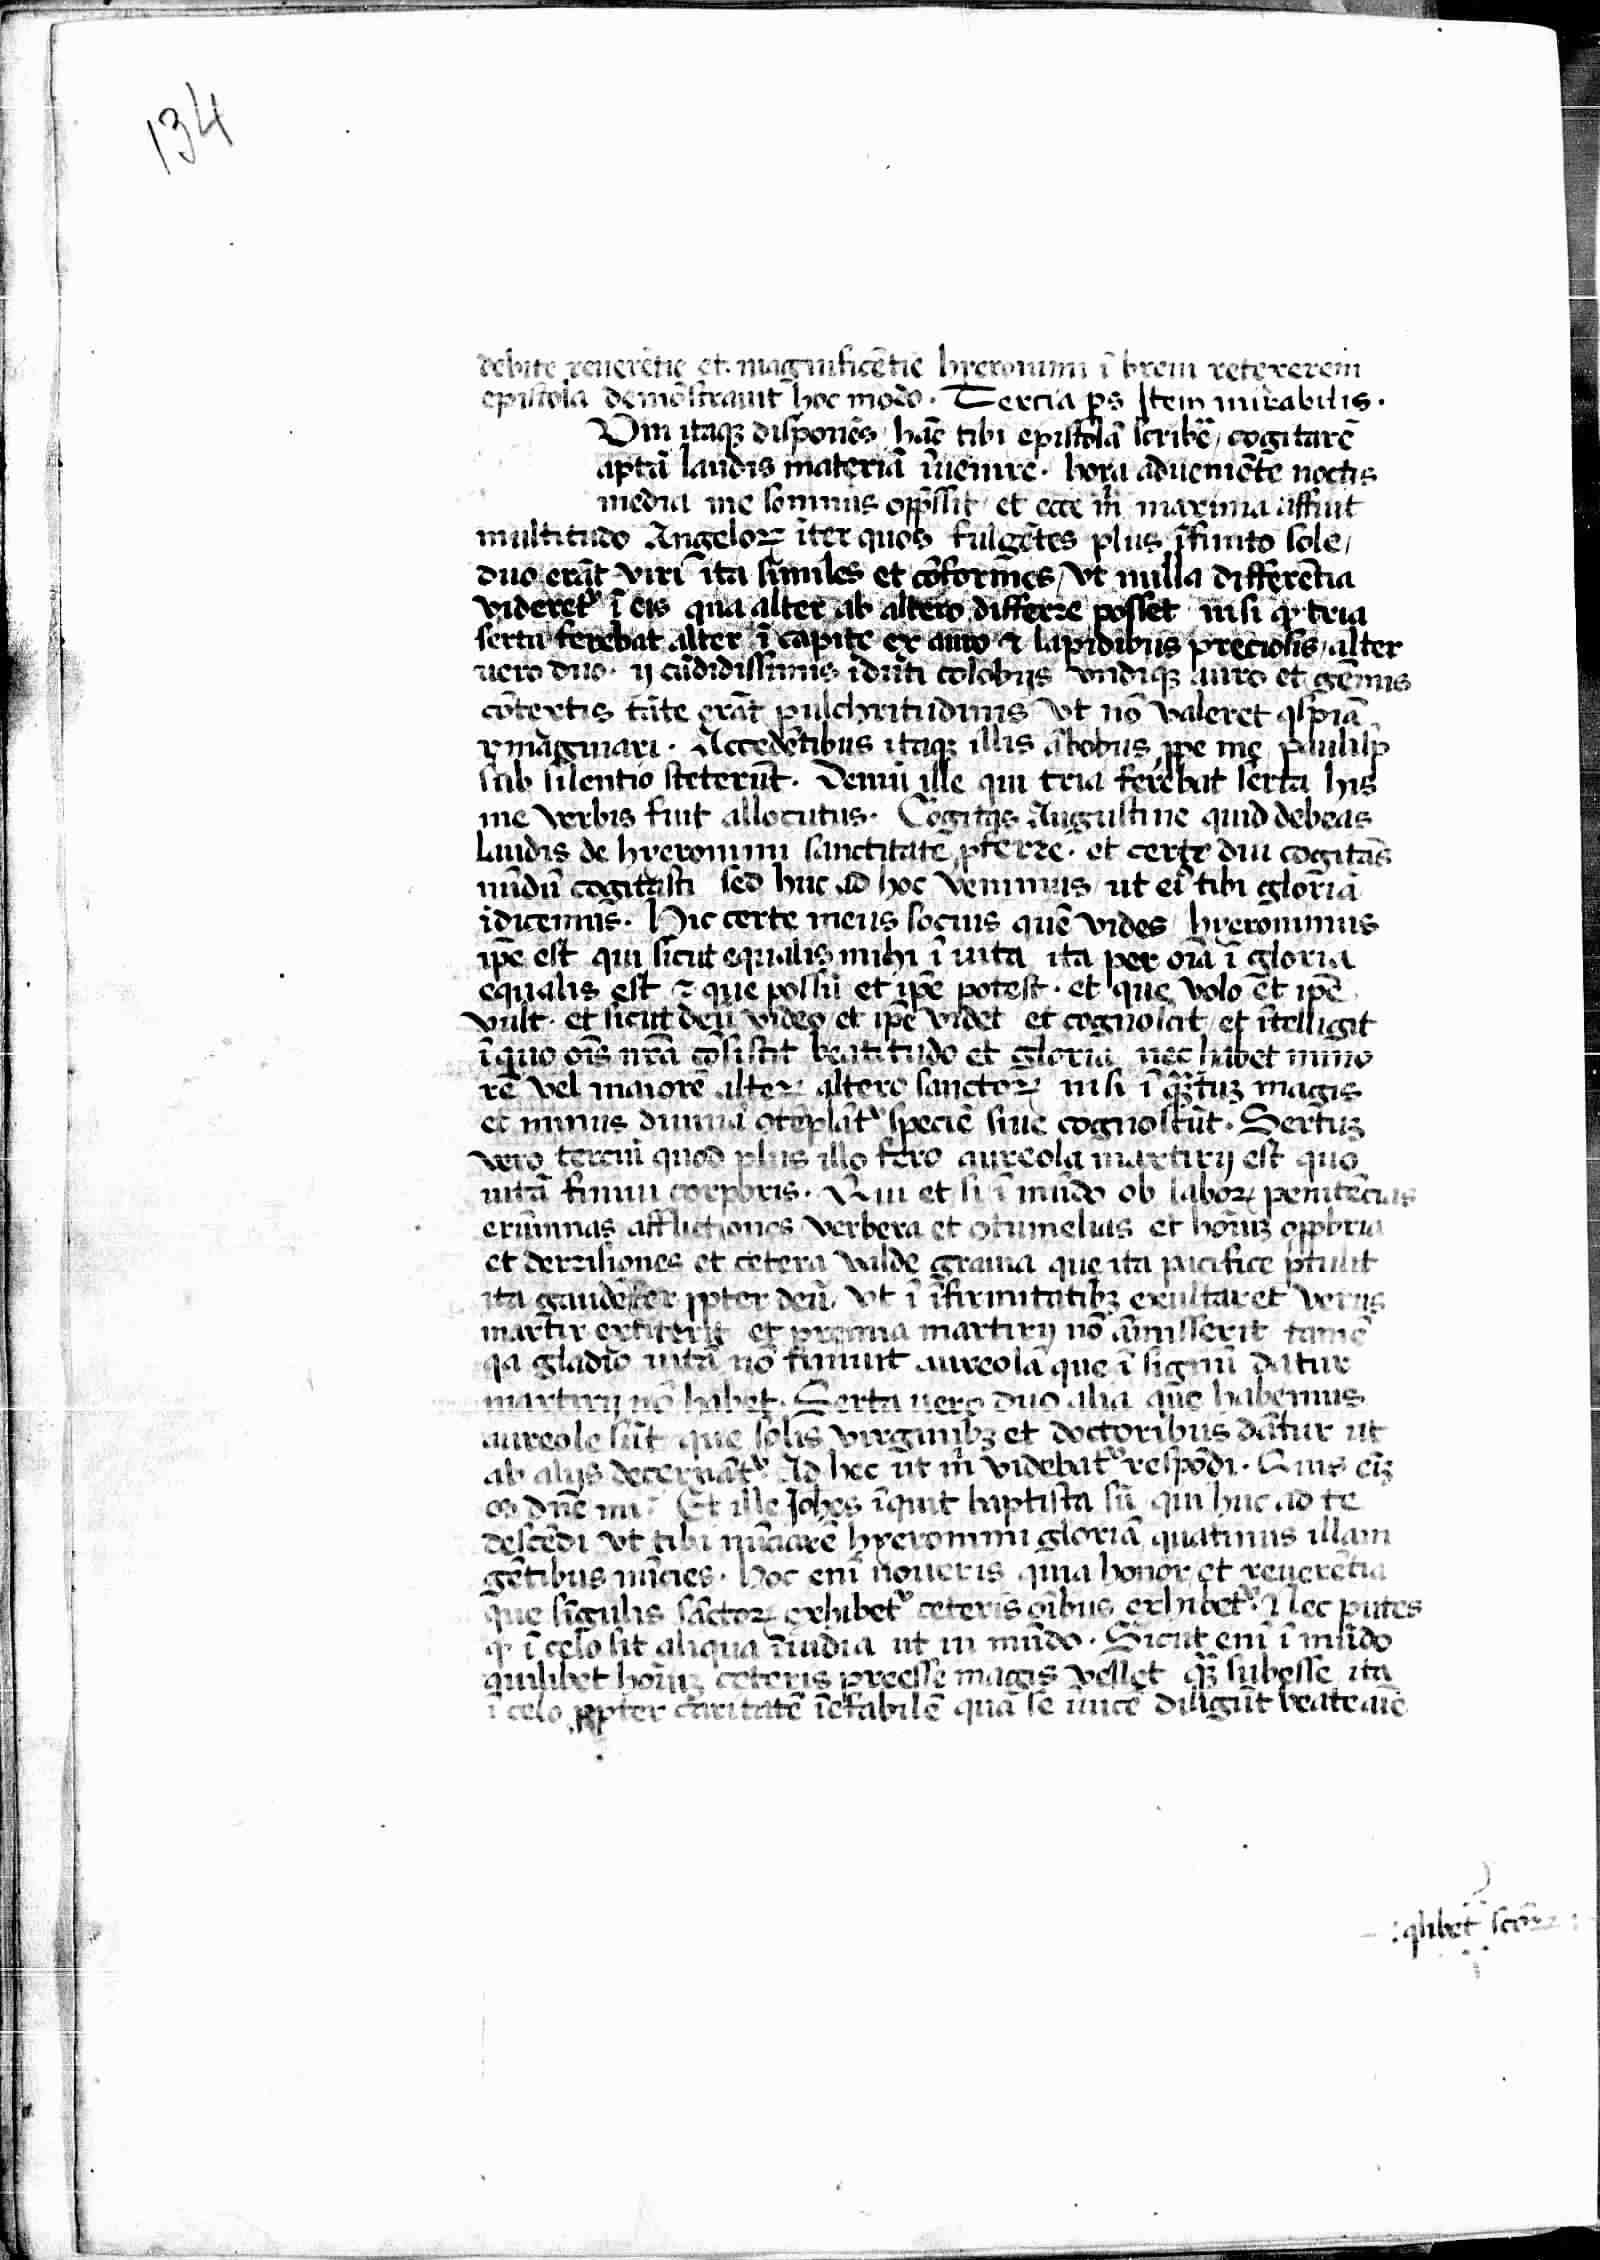 134
debite reuerētie et magnificētie hyeronimi ī breui retexerem
epistola demōstrauit hoc modo. Tercia ps Item mirabilis.
Vm itaqꝫ disponēs hāc tibi epistolā scribē, cogitarē
aptā laudis materiā īuenire. hora adueniēte noctis
media me somnus opp̄ssit et ecce m̄ maxima affuit
multitudo Angeloꝝ īter quos fulgētes plus īfinito sole,
duo erāt viri ita similes et cōformes, vt nulla differētia
videret᷑ ī eis qua alter ab altero differre posset nisi ꝙ tria
serta ferebat alter ī capite ex auro ⁊ lapidibus preciosis, alter
uero duo. ij cādidissimis īduti colobijs vndiqꝫ auro et gēmis
cōtextis tāte erāt pulchritudinis vt nō valeret qspiā
ymaginari. Accedētibus itaqꝫ illis ābobus ꝓpe me paulisꝑ
sub silentio steterūt. Demū ille qui tria ferebat serta his
me verbis fuit allocutus. Cogitas Augustine quid debeas
laudis de hyeronimi sanctitate ꝓferre. et certe diu cogitās
nūdū cogitasti sed huc ad hoc venimus ut ei tibi gloriā
īdicemus. Hic certe meus socius quē vides hyeronimus
ip̄e est qui sicut equalis mihi ī uita ita per oīa ī gloria
equalis est ⁊ que possū et ip̄e potest. et que volo et ip̄e
vult. et sicut deū video et ip̄e videt et cognoscit et ītelligit
ī quo oīs nr̄a cōsistit beatitudo et gloria nec habet mino
rē vel maiorē alteꝝ altero sanctoꝝ nisi ī qꝫtuꝫ magis
et minus diuinā ꝯtēplāt᷑ speciē siue cognoscūt. Sertuꝫ
vero terciū quod plus illo fero aureola martirij est quo
uitā finiui corporis. et si ī mūdo ob laboꝝ penitēcias
erūmnas afflictiones verbera et ꝯtumelias et hoīuꝫ opp̄bria
et derrisiones et cetera valde grauia que ita pacifice ptulit
ita gaudēter ꝓpter deū vt ī īfirmitatibꝫ exultaret verus
martir extiterit et premia martirij nō āmisserit tamē
qa gladio uitā nō finiuit aureolā que ī signū datur
martirij nō habet. Serta uero duo alia que habemus
aureole sūt que solis virginibꝫ et doctoribus dātur ut
ab alijs decernāt᷑ Ad hec ut m̄ videbat᷑ respōdi. Quis eīꝫ
es dn̄e mi: Et ille Joh̄es īquit baptista sū qui huc ad te
descēdi vt tibi nūciarē hyeronimi gloriā quatinus illam
gētibus nūcies. Hoc eni noueris quia honor et reuerētia
que singulis sāctoꝝ exhibet᷑ ceteris oībus exhibet᷑. Nec putes
ꝙ ī celo sit aliqua īuidia ut in mūdo. Sicut eni ī mūdo
quilibet hoīuꝫ ceteris preesse magis vellet qꝫ subesse ita
ī celo ꝓpter caritatē īefabilē qua se iuicē diligūt beate aīe
: qlibet sctoꝝ :